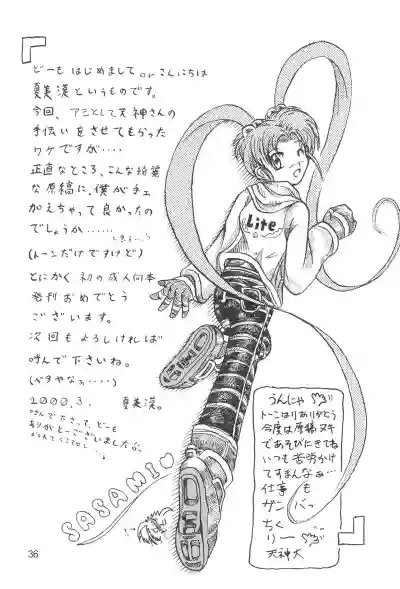 どーも はじめまして or こんにちは
夏美漠というものです。
今回、アシとして天神さんの
手伝いをさせてもらった
ワケですが････
正直なところ、こんな綺麗
な原稿に、僕がチェ
加えちゃって良かったの
でしょうか･････
(トーンだけですけど)
とにかく 初の成人向本
発刊おめでとう
ございます。
次回もよろしければ
呼んで下さいね。
(ベタやなぁ････)
2000.3. 夏美漠。
呼んで下さって、どーも
ありがとーございました。
Lite
SASAMI♡
うんにゃ
トーンはりありがとう
今度は原稿ヌキ
であそびにきてね
いつも苦労かけ
てすまんなぁ…
仕事も
ガンバっ
ちく
りー
天神大
36